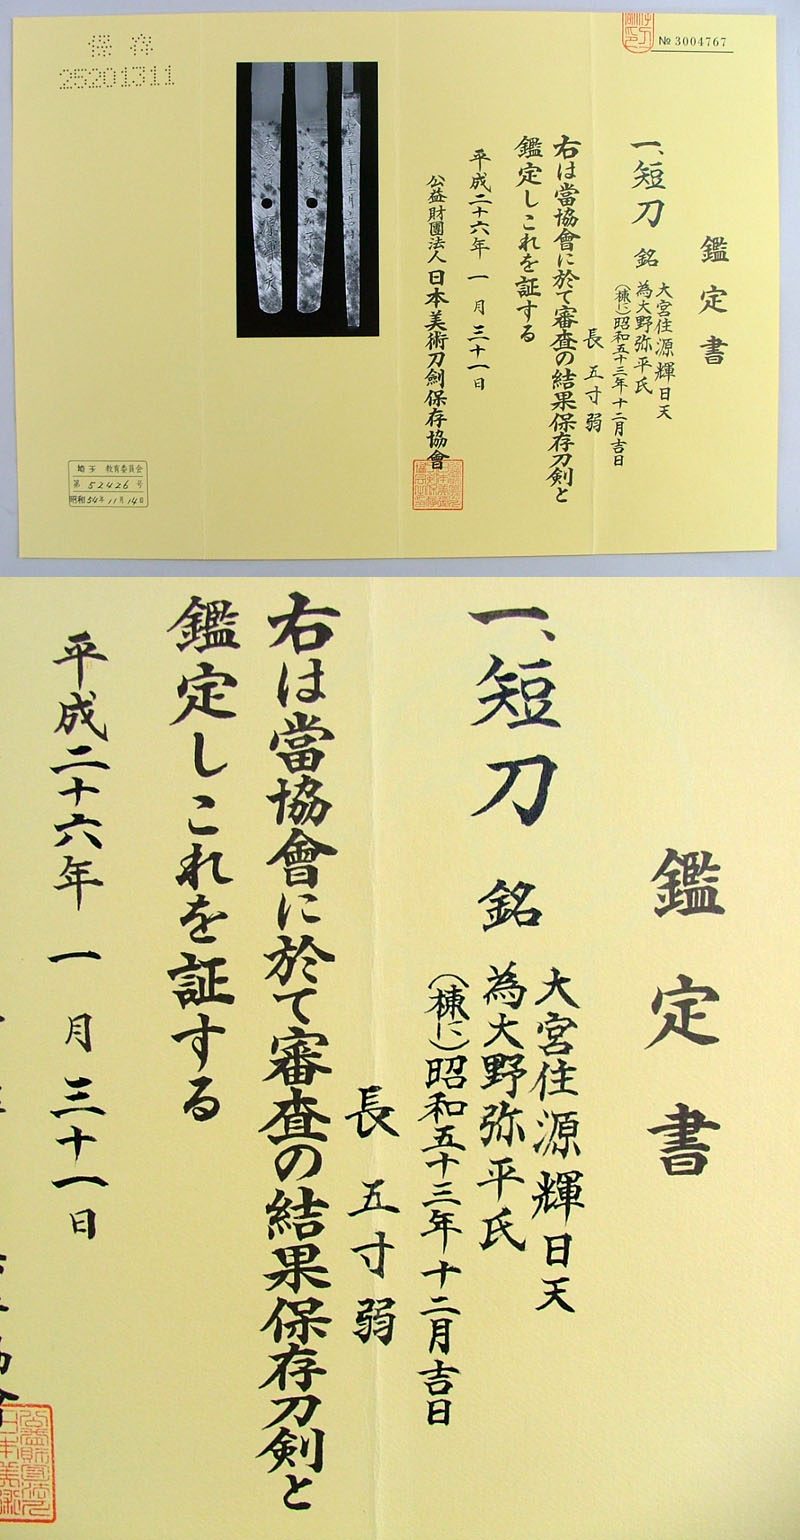 保存
25201311
№ 3004767
鑑定書
一、短刀 銘 大宮住源輝日天
為大野弥平氏
(棟に)昭和五十三年十二月吉日
長 五寸弱
右は當協會に於て審査の結果保存刀剣と
鑑定しこれを証する
平成二十六年 一月 三十一日
公益財團法人 日本美術刀劍保存協會
埼玉 教育委員会
第 52426 号
昭和54年11月14日
鑑定書
一、短刀 銘 大宮住源輝日天
為大野弥平氏
(棟に)昭和五十三年十二月吉日
長 五寸弱
右は當協會に於て審査の結果保存刀剣と
鑑定しこれを証する
平成二十六年 一月 三十一日